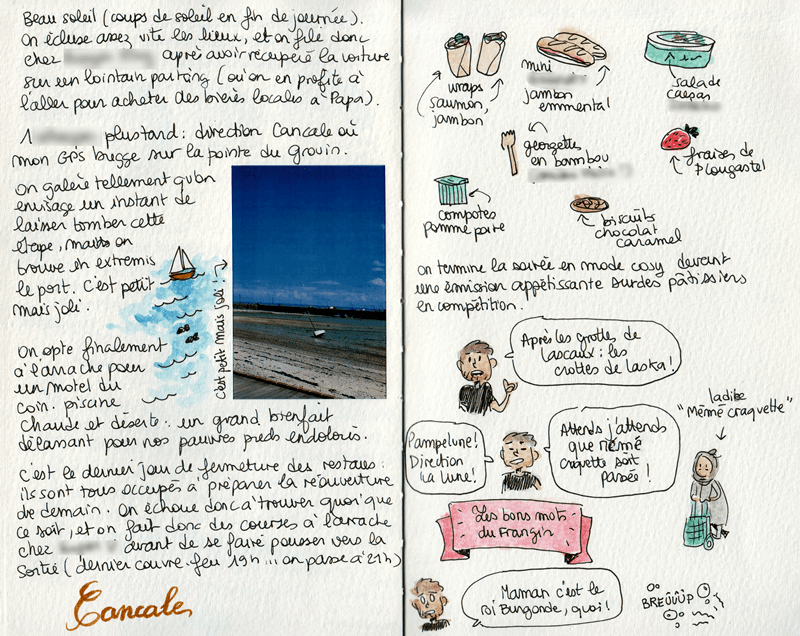 Beau soleil (coups de soleil en fin de journée).
On écluse assez vite les lieux, et on file donc
chez après avoir récupéré la voiture
sur un lointain parking (où on en profite à
l'aller pour acheter des bières locales à Papa).
1 plus tard : direction Cancale où
mon GPS bugge sur la pointe du grouin.
On galère tellement qu'on
envisage un instant de
laisser tomber cette
étape, mais on
trouve in extremis
le port. C'est petit
mais joli.
c'est petit mais joli !
On opte finalement
à l'arrache pour
un motel du
coin. piscine
chaude et déserte : un grand bienfait
délassant pour nos pauvres pieds endoloris.
C'est le dernier jour de fermeture des restaus :
ils sont tous occupés à préparer la réouverture
de demain. On échoue donc à trouver quoi que
ce soit, et on fait donc des courses à l'arrache
chez avant de se faire pousser vers la
sortie (dernier couvre-feu 19h... on passe à 21h)
Cancale
wraps
saumon,
jambon
mini
jambon
emmental
salade
georgettes
en bambou
fraises de
Plougastel
compotes
pomme poire
biscuits
chocolat
caramel
on termine la soirée en mode cosy devant
une émission appétissante sur des pâtissiers
en compétition.
Après les grottes de
Lascaux : les
crottes de Laska !
ladite
"Mémé craquette"
Pampelune !
Direction
la lune !
Attends j'attends
que mémé
craquette soit
passée !
Les bons mots
du Frangin
Maman c'est le
roi Burgonde, quoi !
BREÛÛÛP